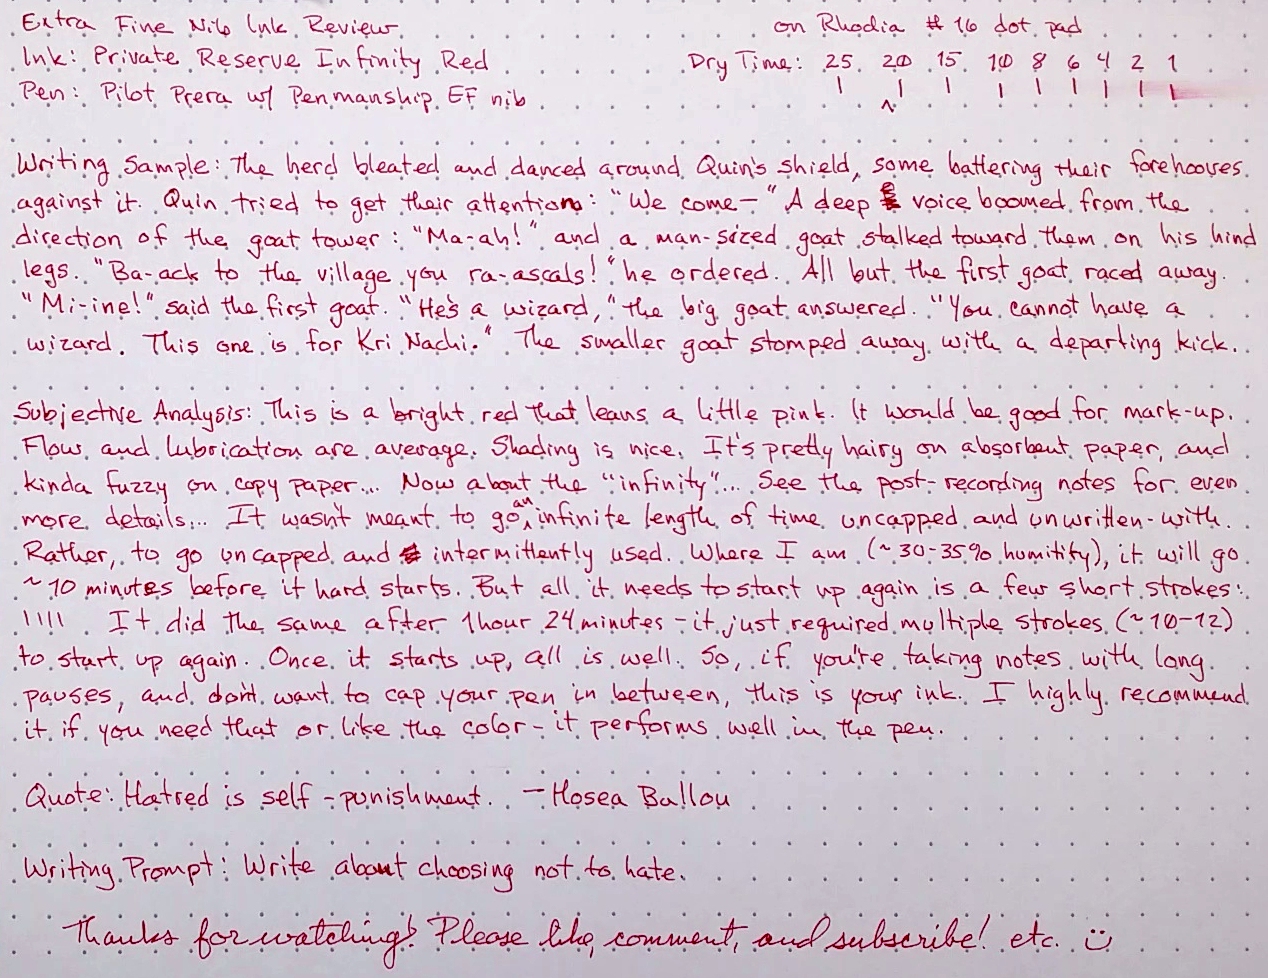 Extra Fine Nib Ink Review on Rhodia #16 dot pad
Ink: Private Reserve Infinity Red Dry Time: 25 20 15 10 8 6 4 2 1
Pen: Pilot Prera w/ Penmanship EF nib
Writing Sample: The herd bleated and danced around Quin's shield, some battering their forehooves
against it. Quin tried to get their attention: "We come—" A deep voice boomed from the
direction of the goat tower: "Ma-ah!" and a man-sized goat stalked toward them on his hind
legs. "Ba-ack to the village you ra-ascals!" he ordered. All but the first goat raced away.
"Mi-ine!" said the first goat. "He's a wizard," the big goat answered. "You cannot have a
wizard. This one is for Kri Nachi." The smaller goat stomped away with a departing kick.
Subjective Analysis: This is a bright red that leans a little pink. It would be good for mark-up.
Flow and lubrication are average. Shading is nice. It's pretty hairy on absorbent paper, and
kinda fuzzy on copy paper... Now about the "infinity"... See the post-recording notes for even
more details... It wasn't meant to go an infinite length of time uncapped and unwritten-with.
Rather, to go uncapped and intermittently used. Where I am (~30-35% humitify), it will go
~10 minutes before it hard starts. But all it needs to start up again is a few short strokes:
|||| . It did the same after 1 hour 24 minutes - it just required multiple strokes (~10-12)
to start up again. Once it starts up, all is well. So, if you're taking notes with long
pauses, and don't want to cap your pen in between, this is your ink. I highly recommend
it if you need that or like the color - it performs well in the pen.
Quote: Hatred is self-punishment. —Hosea Ballou
Writing Prompt: Write about choosing not to hate.
Thanks for watching! Please like, comment, and subscribe! etc. :)